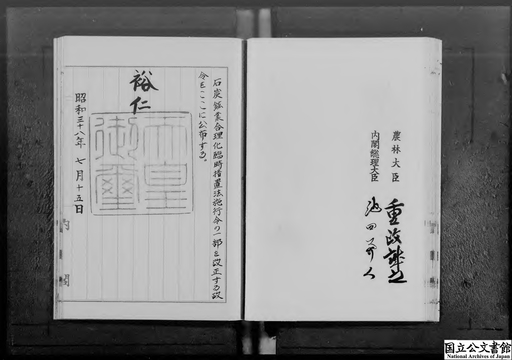 農林大臣 重政誠之
内閣総理大臣 池田勇人
石炭鉱業合理化臨時措置法施行令の一部を改正する政
令をここに公布する。
裕仁
天皇
御璽
昭和三十八年 七月十五日
国立公文書館
National Archives of Japan